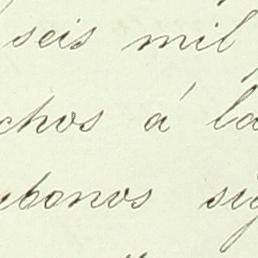 seis mil
chos á la
bonos sig